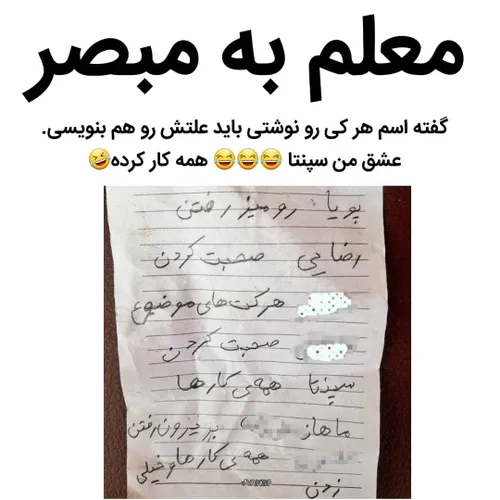 معلم به مبصر
گفته اسم هر کی رو نوشتی باید علتش رو هم بنویسی.
عشق من سپنتا 😂😂😂 همه کار کرده🤣
پویا رو میز رفتن
رضایی صحبت کردن
هرکت های موضیوع
صحبت کردن
سپنتا همه ی کار ها
ماهان بیرون رفتن
همه ی کار ها و خیلی
زدن